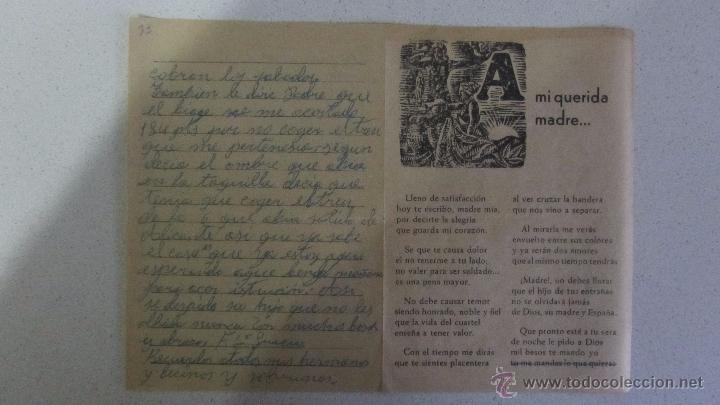 cobran los sabados
Tambien le dire Padre que
el biage me a costado
184 pts por no coger el tren
que me pertenesia segun
decia el ombre que abia
en la taquilla decia que
tenia que coger el tren
de la 6 que abia salido de
Alicante asi que ya sabe
el caso que ya estoy aqui
esperando a que benga mañana
para acer istrucion. Asi
se despide su hijo que no les
olbida nunca con muchos besos
y abrasos
Recuerdos a todos mis hermanos
y becinos y sobrinos
A
mi querida
madre...
Lleno de satisfacción
hoy te escribo, madre mía,
por decirte la alegría
que guarda mi corazón.
Se que te causa dolor
el no tenerme a tu lado;
no valer para ser soldado...
es una pena mayor.
No debe causar temor
siendo honrado, noble y fiel
que la vida del cuartel
enseña a tener valor.
Con el tiempo me dirás
que te sientes placentera
al ver cruzar la bandera
que nos vino a separar.
Al mirarla me verás
envuelto entre sus colores
y ya serán dos amores
que al mismo tiempo tendrás
¡Madre!, no debes llorar
que el hijo de tus entrañas
no se olvidará jamás
de Dios, su madre y España.
Que pronto esté a tu vera
de noche le pido a Dios
mil besos te mando yo
tu me mandas lo que quieras
© www.todocoleccion.net